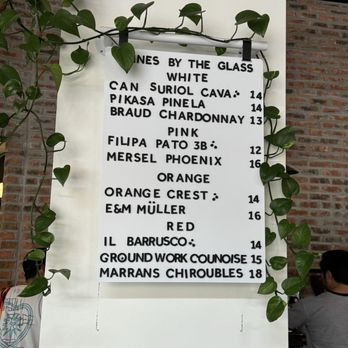 WINES BY THE GLASS
WHITE
CAN SURIOL CAVA 14
PIKASA PINELA 14
BRAUD CHARDONNAY 13
PINK
FILIPA PATO 3B 12
MERSEL PHOENIX 16
ORANGE
ORANGE CREST 14
E&M MÜLLER 16
RED
IL BARRUSCO 14
GROUNDWORK COUNOISE 15
MARRANS CHIROUBLES 18